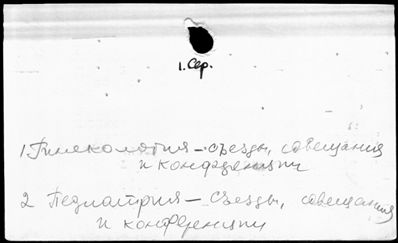 1. Сер.
1. Гинекология – съезды, совещания
и конференции
2. Педиатрия – съезды, совещания
и конференции